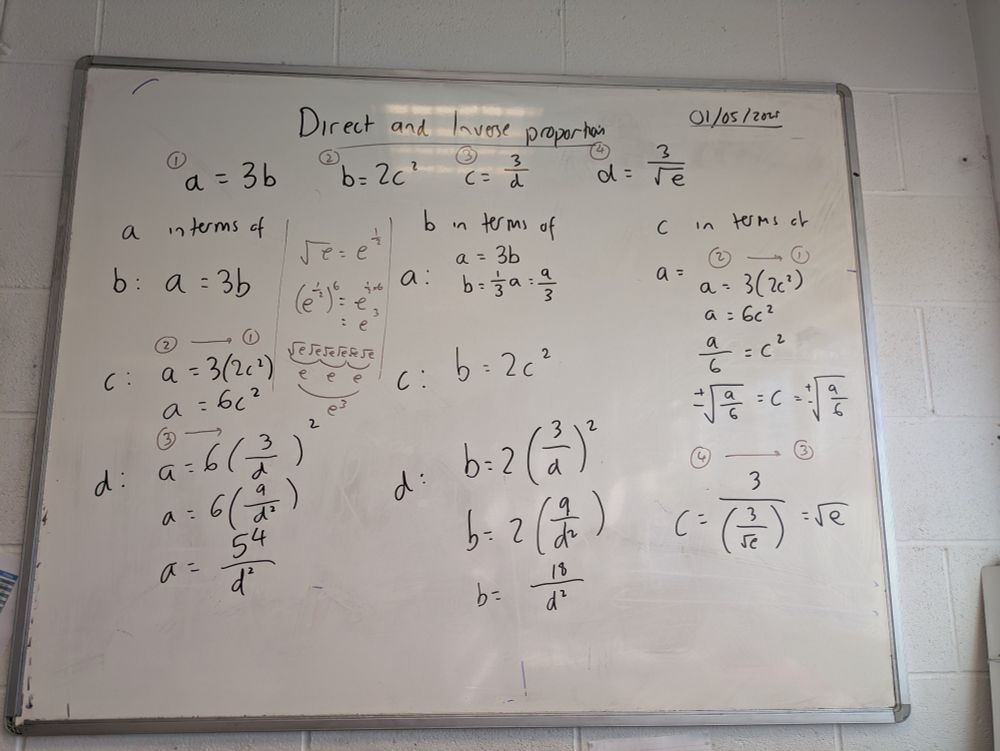 Direct and Inverse proportion
01/05/2025
① a = 3b ② b = 2c² ③ c = 3/d ④ d = 3/√e
a in terms of
b: a = 3b
② → ①
c: a = 3(2c²)
a = 6c²
③ →
d: a = 6(3/d)²
a = 6(9/d²)
a = 54/d²
√e = e^(1/2)
(e^(1/2))^6 = e^(1/2×6)
= e³
√e√e√e√e√e√e
e e e
e³
b in terms of
a = 3b
a: b = 1/3 a = a/3
c: b = 2c²
d: b = 2(3/d)²
b = 2(9/d²)
b = 18/d²
c in terms of
② → ①
a = a = 3(2c²)
a = 6c²
a/6 = c²
±√(a/6) = c = ±√(a/6)
④ → ③
c = 3/(3/√e) = √e